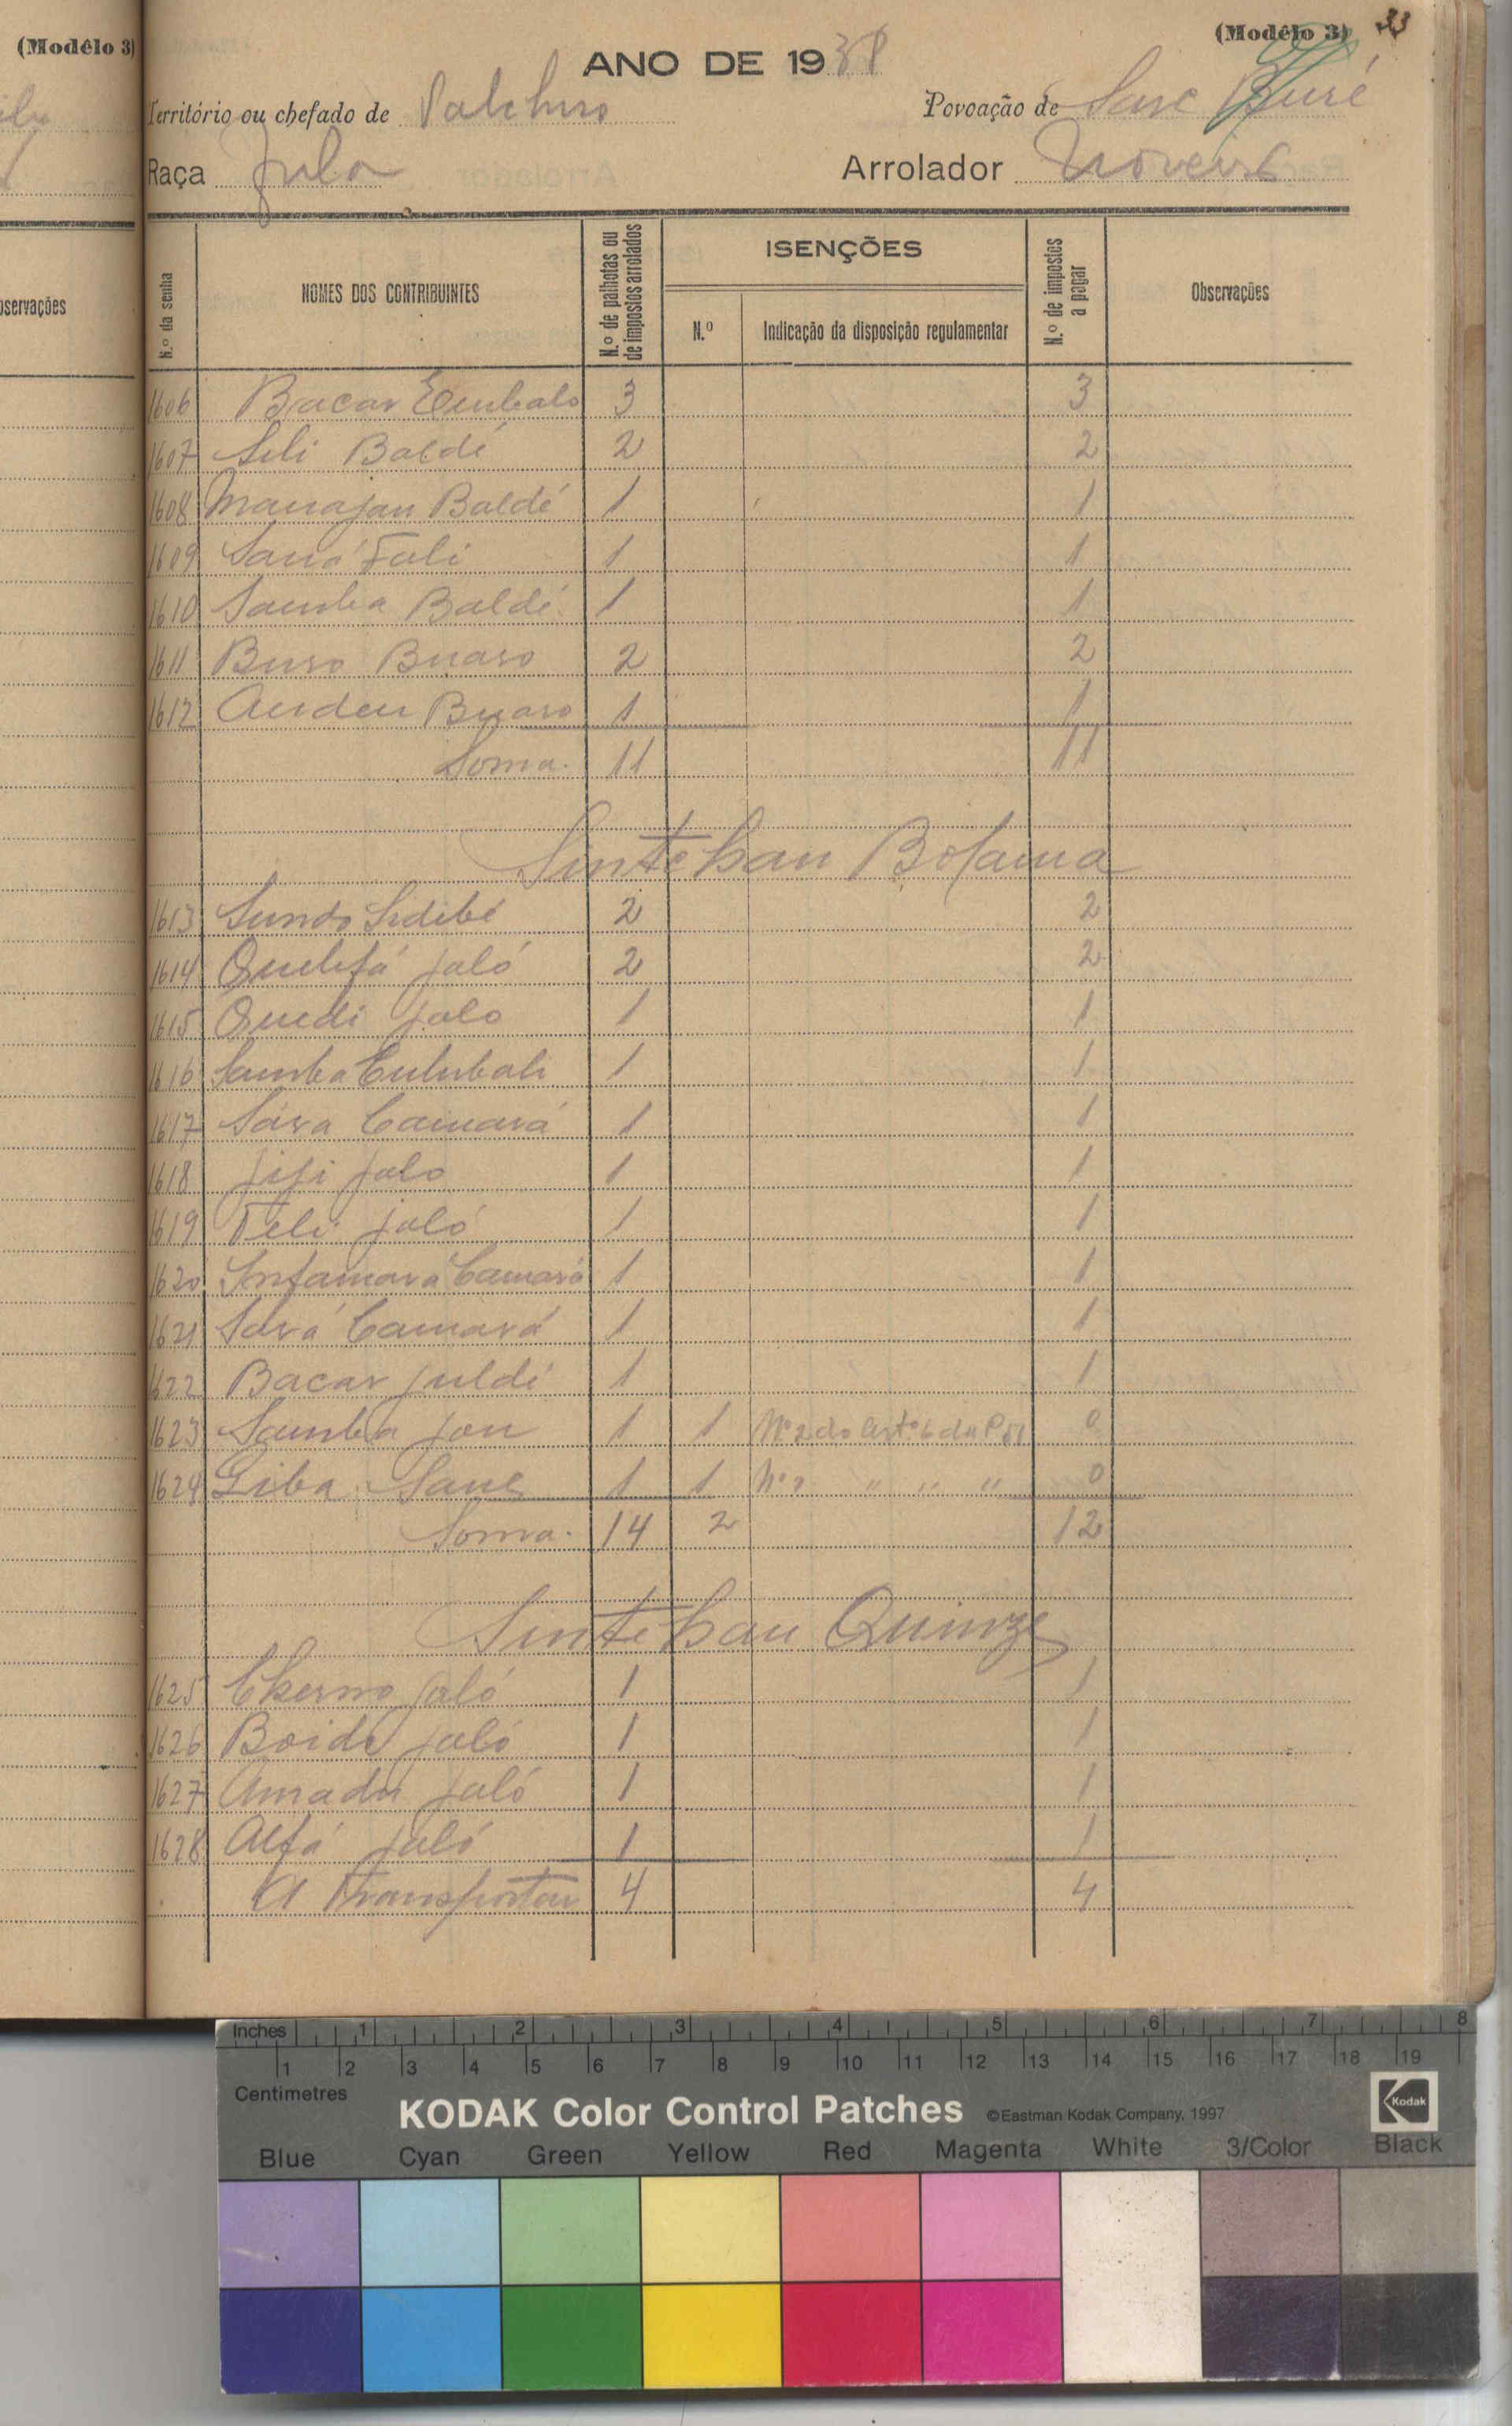 (Modêlo 3)
(Modêlo 3) 33
ANO DE 1938
Território ou chefado de
Povoação de Sare
Raça Fula
Arrolador
Observações
N.º da senha
NOMES DOS CONTRIBUINTES
N.º de palhotas ou de impostos arrolados
ISENÇÕES
N.º
Indicação da disposição regulamentar
N.º de impostos a pagar
Observações
1606 Bacar Embalo 3 3
1607 Seli Baldé 2 2
1608 Manajan Baldé 1 1
1609 Saná Fali 1 1
1610 Samba Baldé 1 1
1611 Buaro 2 2
1612 Buaro 1 1
Soma. 11 11
Sintchan Bolama
1613 Sundo Sidibé 2 2
1614 Quebá Jaló 2 2
1615 Quedi Jalo 1 1
1616 Samba Culubali 1 1
1617 Sara Camará 1 1
1618 Jifi Jalo 1 1
1619 Teli Jaló 1 1
1620 Infamará Camará 1 1
1621 Sará Camará 1 1
1622 Bacar Juldé 1 1
1623 Samba Jau 1 1 Nº 2 do Artº 6 da 0
1624 Liba Sane 1 1 Nº 2 " " " 0
Soma. 14 2 12
Sintchan Quinze
1625 Cherno Jaló 1 1
1626 Boide Jaló 1 1
1627 Amadu Jaló 1 1
1628 Alfá Jaló 1 1
A Transportar 4 4
Inches 1 2 3 4 5 6 7 8
1 2 3 4 5 6 7 8 9 10 11 12 13 14 15 16 17 18 19
Centimetres
KODAK Color Control Patches ©Eastman Kodak Company, 1997 Kodak
Blue Cyan Green Yellow Red Magenta White 3/Color Black